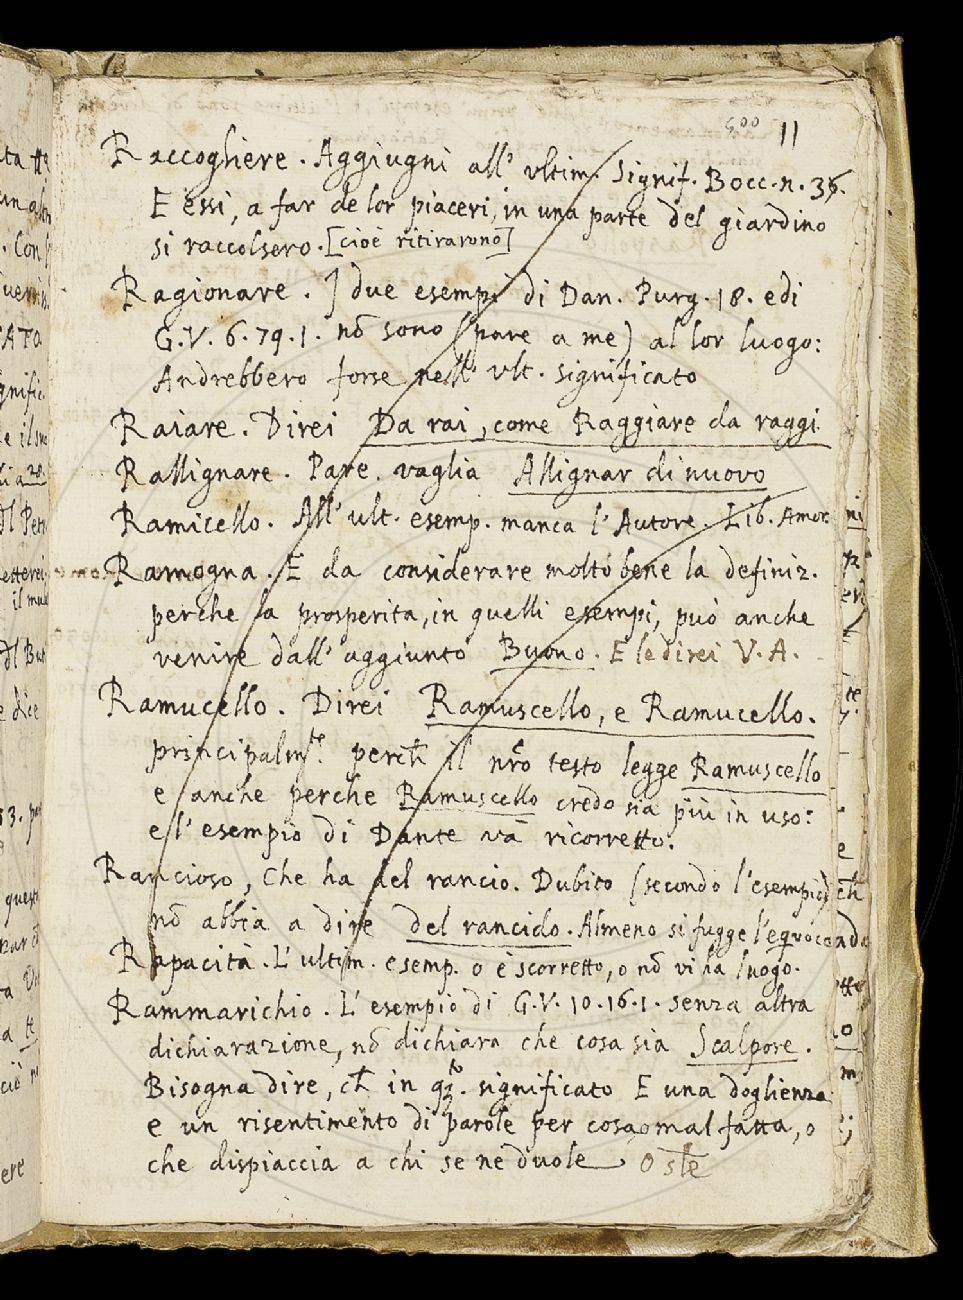 500 11
Raccogliere. Aggiugni all' vltim. Signif. Bocc. n. 36.
E essi, a far de lor piaceri, in una parte del giardino
si raccolsero. [cioè ritirarono]
Ragionare. I due esempi di Dan. Purg. 18. e di
G. V. 6. 79. 1. nō sono (pare a me) al lor luogo:
Andrebbero forse nell' vlt. significato
Raiare. Direi Da rai, come Raggiare da raggi
Rallignare. Pare. vaglia Allignar di nuovo
Ramicello. All' ult. esemp. manca l'Autore. Lib. Amor.
Ramogna. È da considerare molto bene la definiz.
perche la prosperita, in quelli esempi, può anche
venire dall' aggiunto Buono. E le direi V. A.
Ramucello. Direi Ramuscello, e Ramucello.
principalmte. perch il nro testo legge Ramuscello
e anche perche Ramuscello credo sia più in uso:
e l'esempio di Dante và ricorretto.
Rancioso, Che ha del rancio. Dubito (secondo l'esempio)
nō abbia a dire del rancido. Almeno si fugge l'equoco
Rapacità. L' ultim. esemp. o è scorretto, o nō vi ha luogo.
Rammarichio. L' esempio di G. V. 10. 16. 1. senza altra
dichiarazione, nō dichiara che cosa sia Scalpore.
Bisogna dire, ch in qto. significato E una doglienza
e un risentimento di parole per cosa o mal fatta, o
che dispiaccia a chi se ne duole